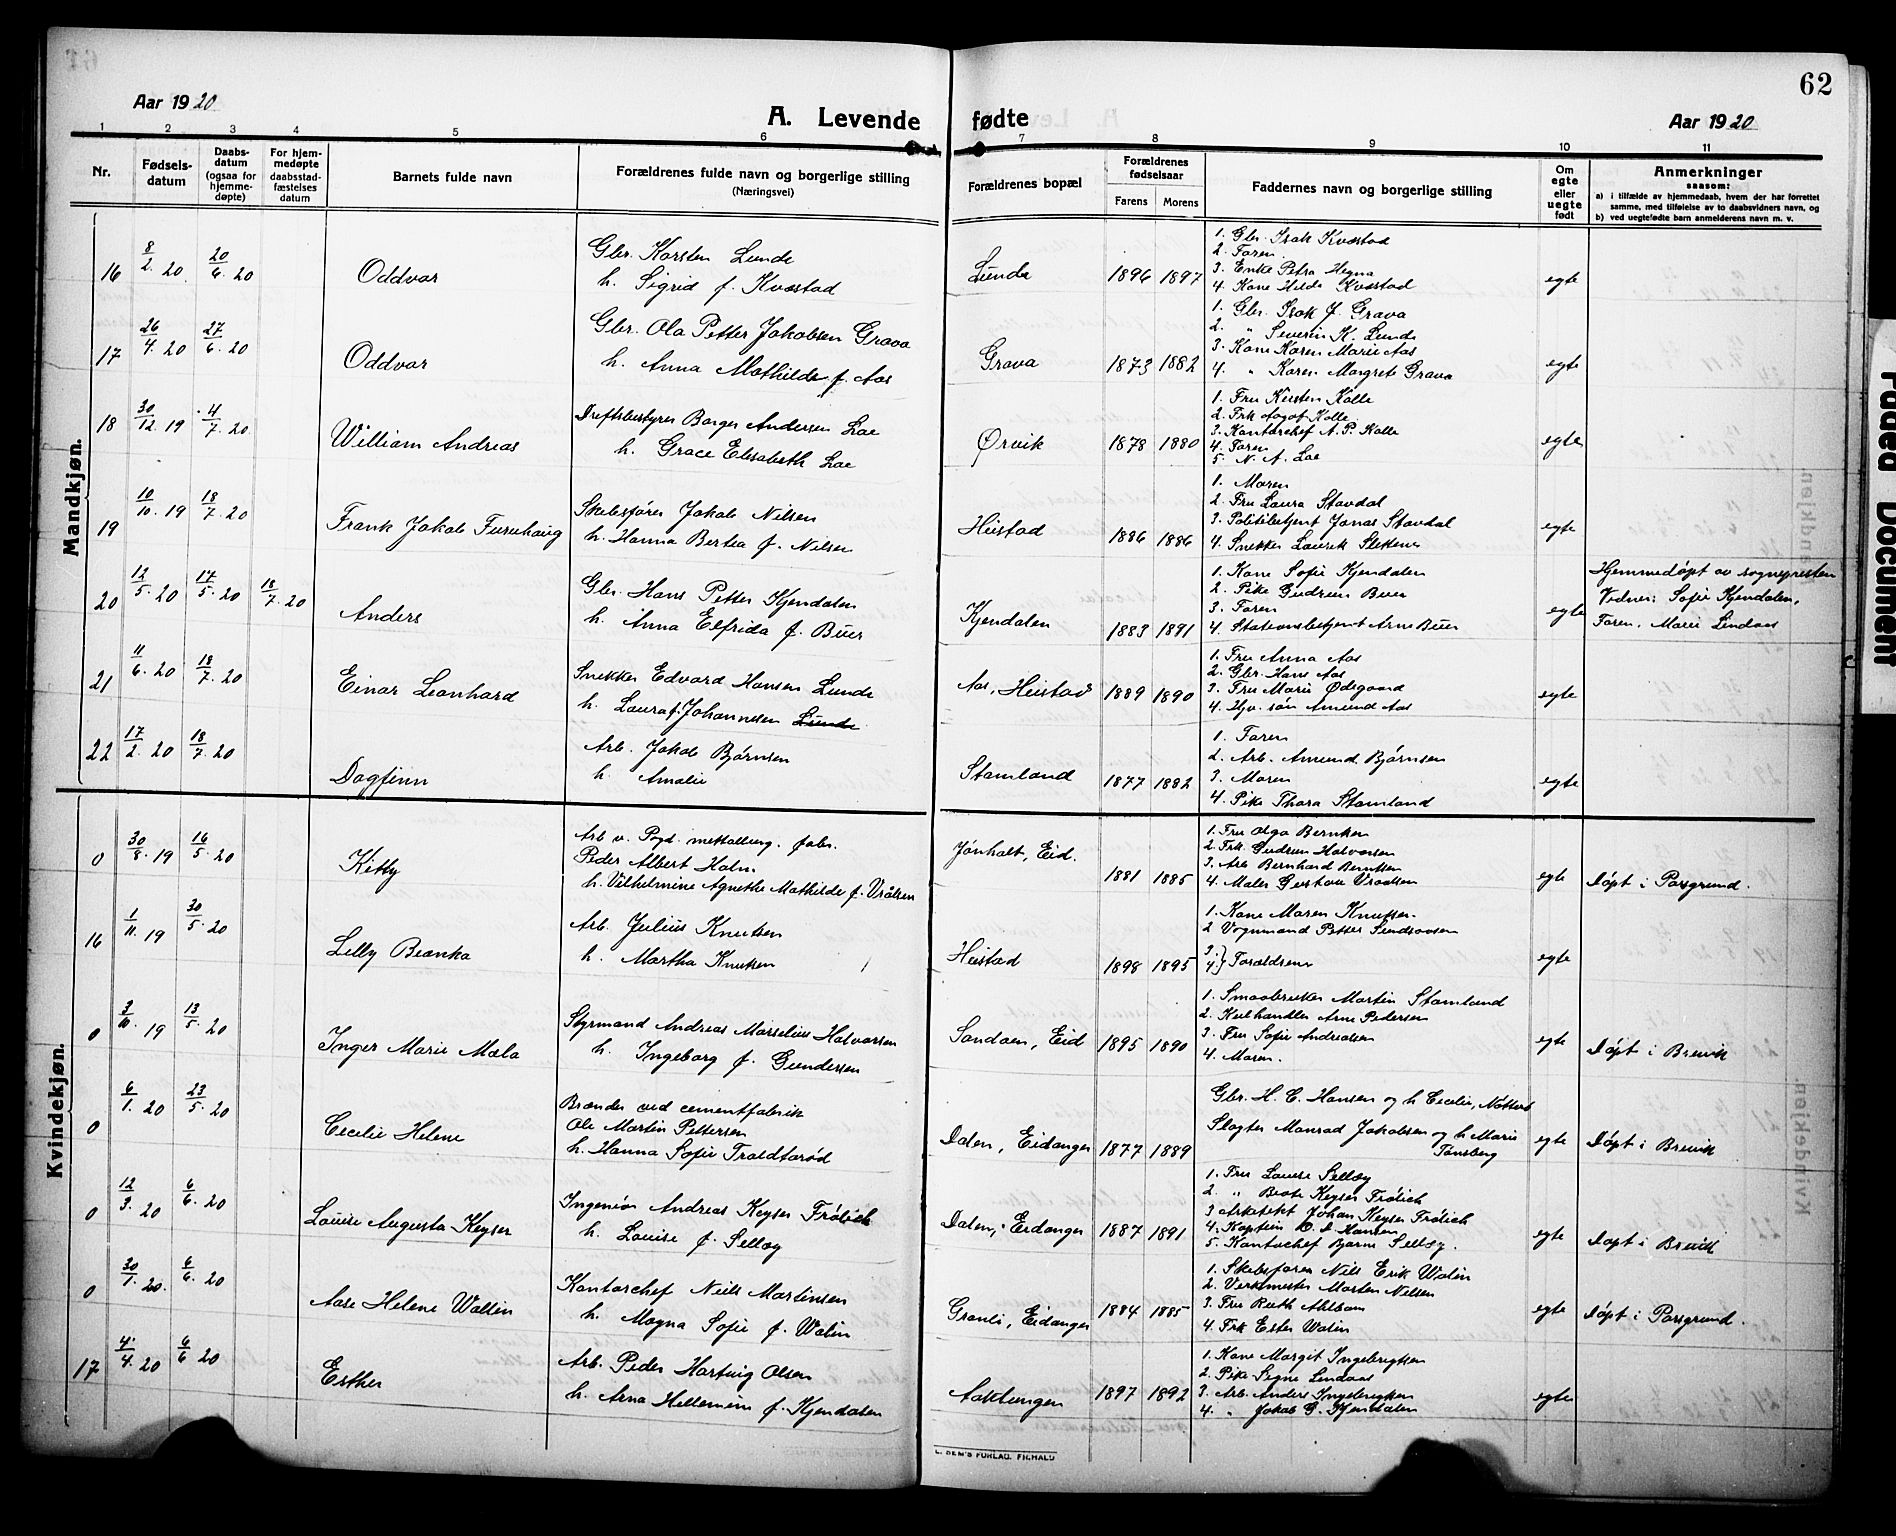 62
Aar 1920
A. Levende fødte
Aar 1920
1 2 3 4 5 6 7 8 9 10 11
Nr.
Fødsels-
datum
Daabs-
datum
(ogsaa for
hjemme-
døpte)
For hjem-
medøpte
daabsstad-
fæstelses
datum
Barnets fulde navn
Forældrenes fulde navn og borgerlige stilling
(Næringsvei)
Forældrenes bopæl
Forældrenes
fødselsaar
Farens Morens
Faddernes navn og borgerlige stilling
Om
egte
eller
uegte
født
Anmerkninger
saasom:
a) i tilfælde av hjemmedaab, hvem der har forrettet
samme, med tilføielse av to daabsvidners navn, og
b) ved uegtefødte barn anmelderens navn m. v.
Mandkjøn.
16 8/2. 20 20/6. 20 Oddvar
Gbr. Karsten Lunde
h. Sigrid f. Kvæstad
Lunde 1896 1897
1. Gbr. Isak Kvæstad
2. Faren
3. Enke Petra Hegna
4. Kone Hilda Kvæstad
egte
17 26/4. 20 27/6. 20 Oddvar
Gbr. Ola Petter Jakobsen Grava
h. Anna Mathilde f. Aas
Grava 1873 1882
1. Gbr. Isak J. Grava
2. " Severin K. Lunde
3. Kone Karen Marie Aas
4. " Karen Margrete Grava
egte
18 30/12. 19 4/7. 20 William Andreas
Driftsbestyrer Borger Andersen Lae
h. Grace Elisabeth Lae
Ørvik 1878 1880
1. Fru Kirsten Kolle
2. Frk Aagot Kolle
3. Kontorchef A. P. Kolle
4. Faren
5. N. A. Lae
egte
19 10/10. 19 18/7. 20 Frank Jakob Furuhaug
Skibsfører Jakob Nilsen
h. Hanna Bertea f. Nilsen
Heistad 1886 1886
1. Moren
2. Fru Laura Stavdal
3. Politibetjent Jonas Stavdal
4. Snekker Laurik
egte
20 12/5. 20 17/5. 20 18/7. 20 Anders
Gbr. Hans Petter Kjendalen
h. Anna Elfrida f. Buer
Kjendalen 1883 1891
1. Kone Sofie Kjendalen
2. Pike Gudrun Buer
3. Faren
4. Stationsbetjent Arne Buer
egte
Hjemmedøpt av sognepresten
Vidner: Sofie Kjendalen,
Faren, Marie Lindaas
21 11/6. 20 18/7. 20 Einar Leonhard
Snekker Edvard Hansen Lunde
h. Laura f. Johannesen Lunde
Aas, Heistad 1889 1890
1. Fru Anna Aas
2. Gbr. Hans Aas
3. Fru Marie Ødegaard
4. Hjv. søn Amund Aas
egte
22 17/2. 20 18/7. 20 Dagfinn
Arb. Jakob Bjørnsen
h. Amalie
Stamland 1877 1882
1. Faren
2. Arb. Amund Bjørnsen
3. Moren
4. Pike Thora Stamland
egte
Kvindekjøn.
0 30/8. 19 16/5. 20 Kitty
Arb v. Psgd. mettalverg. fabr.
Peder Albert Holm
h. Vilhelmine Agnethe Mathilde f. Vrålsen
Jønholt, Eid. 1881 1885
1. Fru Olga Berntsen
2. Frk. Gudrun Halvorsen
3. Arb Bernhard Berntsen
4. Maler Gustav Vraalsen
egte
Døpt i Porsgrund.
16 1/11. 19 30/5. 20 Lilly Bianka
Arb. Julius Knutsen
h. Martha Knutsen
Heistad 1898 1895
1. Kone Maren Knutsen
2 Vognmand Petter
3.
4. } Forældrene
egte
0 3/10. 19 13/5. 20 Inger Marie Mæla
Styrmand Andreas Marselius Halvorsen
h. Ingeborg f. Gundersen
Sandøen, Eid 1895 1890
1. Smaabruker Martin Stamland
2. Kulhandler Arne Pedersen
3. Fru Sofie Andreassen
4. Moren.
egte
Døpt i Brevik
0 6/1. 20 23/5. 20 Cecilie Helene
Brænder ved cementfabrik
Ole Martin Pettersen
h. Hanna Sofie Traldtarød
Dalen, Eidanger 1877 1889
Gbr. H. C. Hansen og h Cecilie, Nøtterø
Slagter Monrad Jakobsen og h Marie
Tønsberg
egte
Døpt i Brevik
0 12/3. 20 6/6. 20 Louise Augusta Keyser
Ingeniør Andreas Keyser Frølich
h. Louise f. Selleg
Dalen, Eidanger 1887 1891
1. Fru Louise Selleg
2. " Beate Keyser Frølich
3 Arkitekt Johan Keyser Frølich
4. Kaptein O. A Hansen
5. Kontorchef Bjarne Selleg.
egte
Døpt i Brevik
0 30/1. 20. 6/6. 20 Aase Helene Wallin
Kontorchef Niels Martinsen
h. Magna Sofie f. Walin
Granli, Eidanger 1884 1885
1. Skibsfører Nils Erik Walin
2. Verkmester Morten Nilsen
3. Fru Ruth Ahlbom
4. Frk Ester Walin
egte
Døpt i Porsgrund.
17 4/4. 20 6/6 20 Esther
Arb. Peder Hartvig Olsen
h. Arna Hellemine f. Kjendalen
1897 1892
1. Kone Margit Ingebregtsen
2. Pike Signe Lindaas
3. Arb. Anders Ingebregtsen
4. " Jakob G. Kjendalen
egte
E. SEM'S FORLAG. FR.HALD
Faded Document